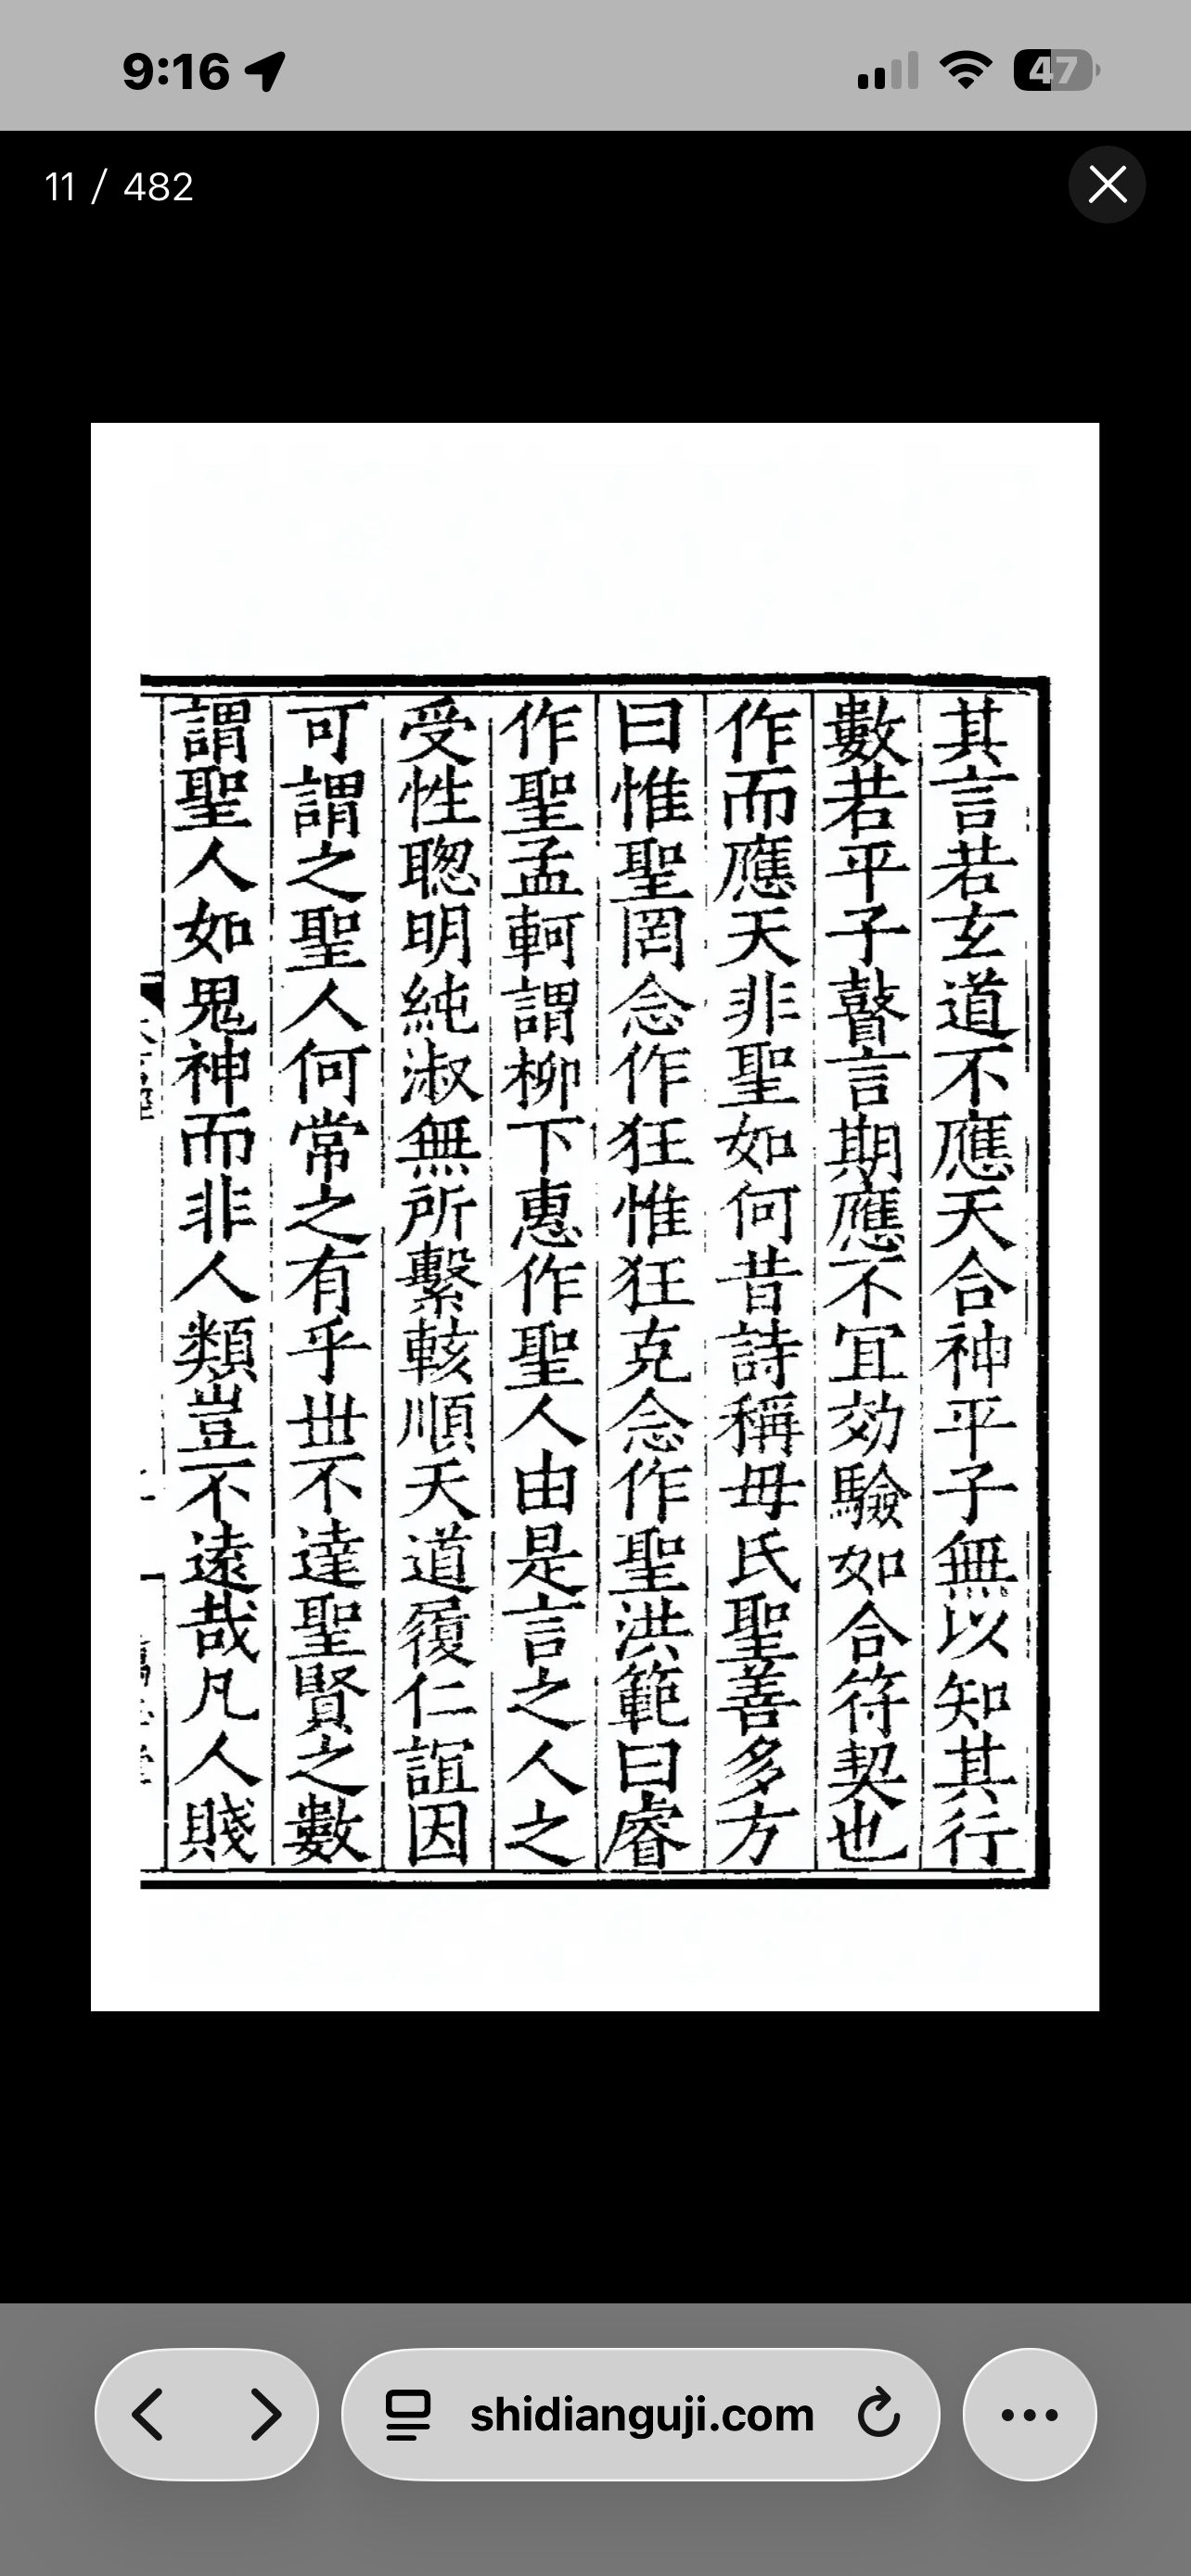 9:16
47
11 / 482
其言若玄道不應天合神平子無以知其行
數若平子瞽言期應不冝効驗如合符契也
作而應天非聖如何昔詩稱毋氏聖善多方
曰惟聖罔念作狂惟狂克念作聖洪範曰睿
作聖孟軻謂柳下惠作聖人由是言之人之
受性聰明純淑無所繫輆順天道履仁誼因
可謂之聖人何常之有乎丗不達聖賢之數
謂聖人如鬼神而非人類豈不遠哉凡人賤
shidianguji.com